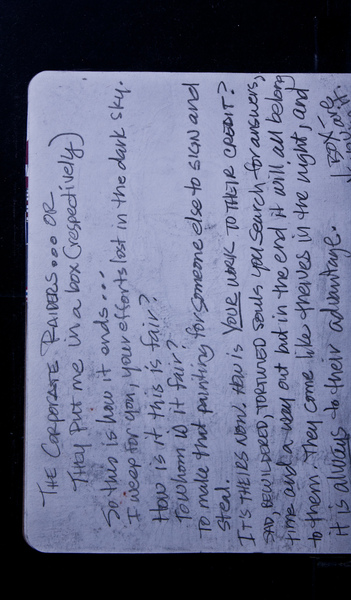 THE CORPORATE RAIDERS... OR
THEY PUT me in a box (respectively)
So this is how it ends...
I weep for you, your efforts lost in the dark sky.
How is it this is fair?
To whom is it fair?
To make that painting for someone else to SIGN and
steal.
IT'S THEIRS NOW. HOW IS YOUR WORK TO THEIR CREDIT?
SAD, BEWILDERED, TORTURED souls you search for answers,
time and a way out but in the end it will all belong
to them. They come like thieves in the night, and
it is always to their advantage.